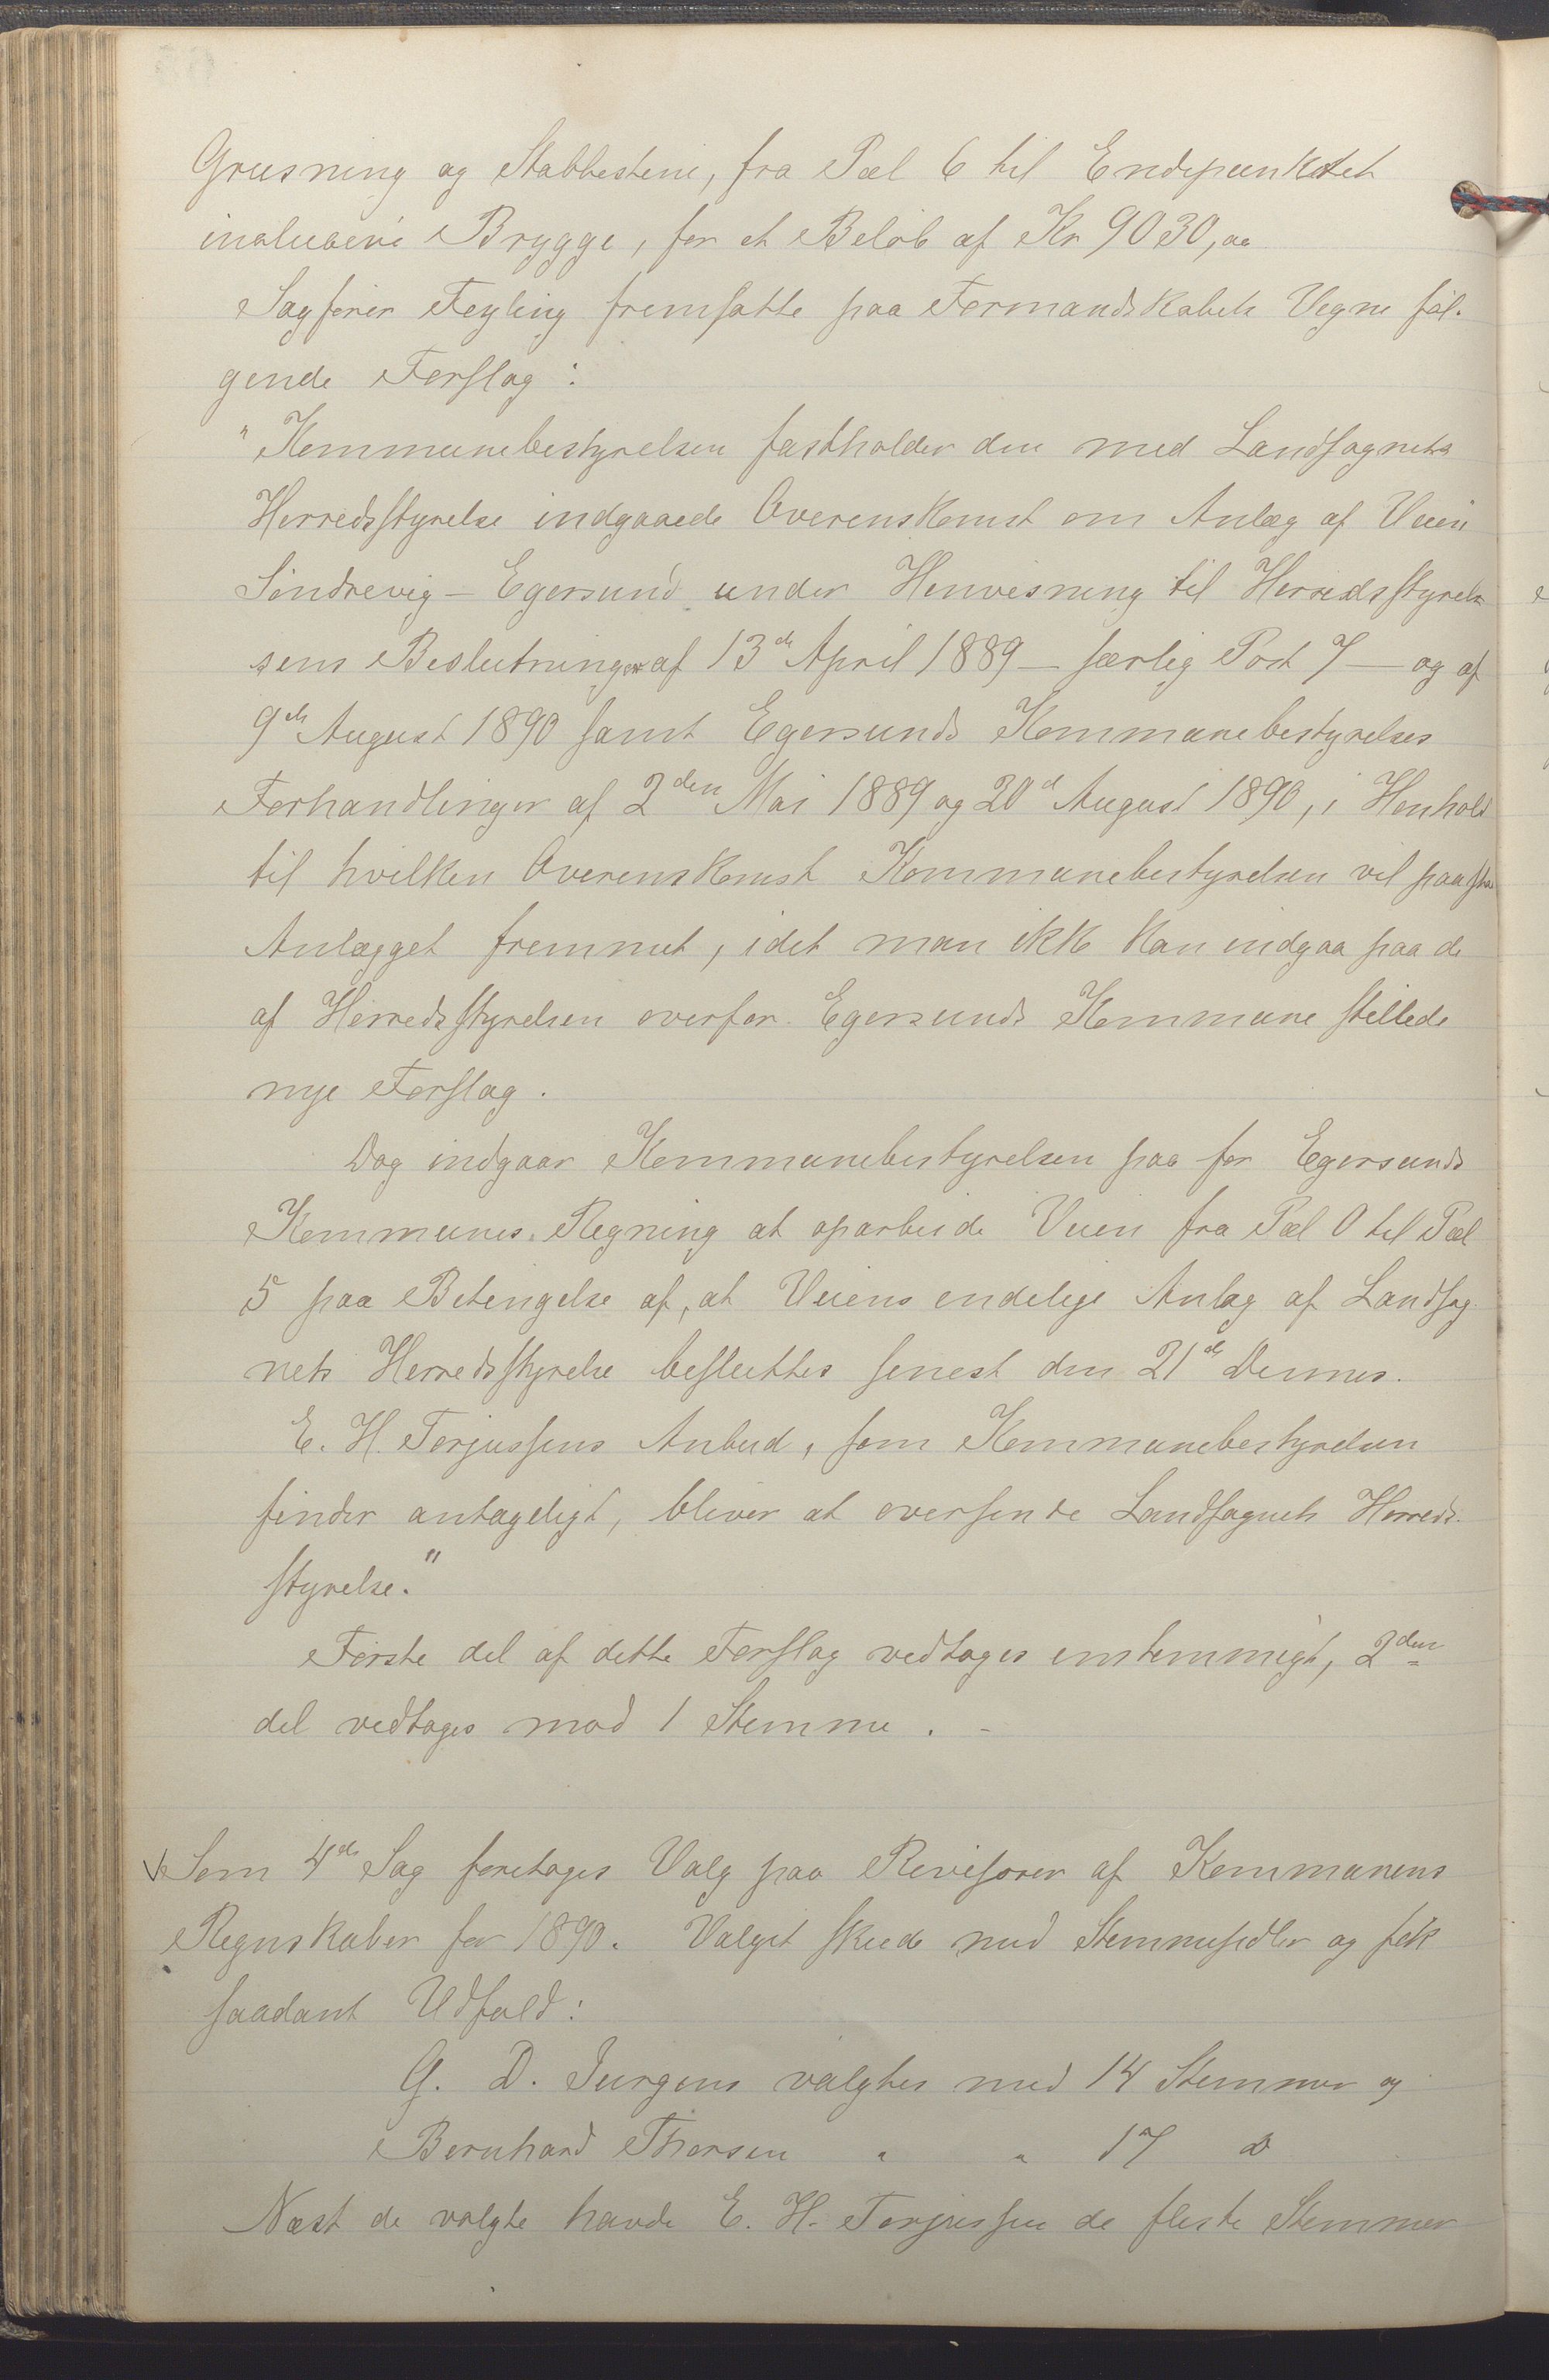 Grusning og Stabbestene, fra Pæl 6 til Endepunktet
inclusive Brygge, for et Beløb af Kr 9030,00
Sagfører Feyling fremsatte paa Formandskabets Vegne føl-
gende Forslag:
"Kommunebestyrelsen fastholder den med Landsognets
Herredsstyrelse indgaaede Overenskomst om Anlæg af Veien
Sindrevig – Egersund under Henvisning til Herredsstyrel-
sens Beslutninger af 13de April 1889 – særlig Post 7 – og af
9de August 1890 samt Egersunds Kommunebestyrelses
Forhandlinger af 2den Mai 1889 og 20de August 1890, i Henhold
til hvilken Overenskomst Kommunebestyrelsen vil paastaa
Anlægget fremmet, idet man ikke kan indgaa paa de
af Herredsstyrelsen overfor Egersunds Kommune stillede
nye Forslag.
Dog indgaar Kommunebestyrelsen paa for Egersunds
Kommunes Regning at oparbeide Veien fra Pæl 0 til Pæl
5 paa Betingelse af, at Veiens endelige Anlæg af Landsog-
nets Herredsstyrelse besluttes senest den 21de Dennes.
E. H. Torjussens Anbud, som Kommunebestyrelsen
finder antageligt, bliver at oversende Landsognets Herreds-
styrelse."
Første del af dette Forslag vedtages enstemmigt, 2den
del vedtages mod 1 Stemme. –
Som 4de Sag foretages Valg paa Revisorer af Kommunens
Regnskaber for 1890. Valget skede med Stemmesedler og fik
saadant Udfald:
G. D. Jurgens valgtes med 14 Stemmer og
Bernhard Thorsen " " 17 do
Næst de valgte havde E. H. Torjussen de fleste Stemmer